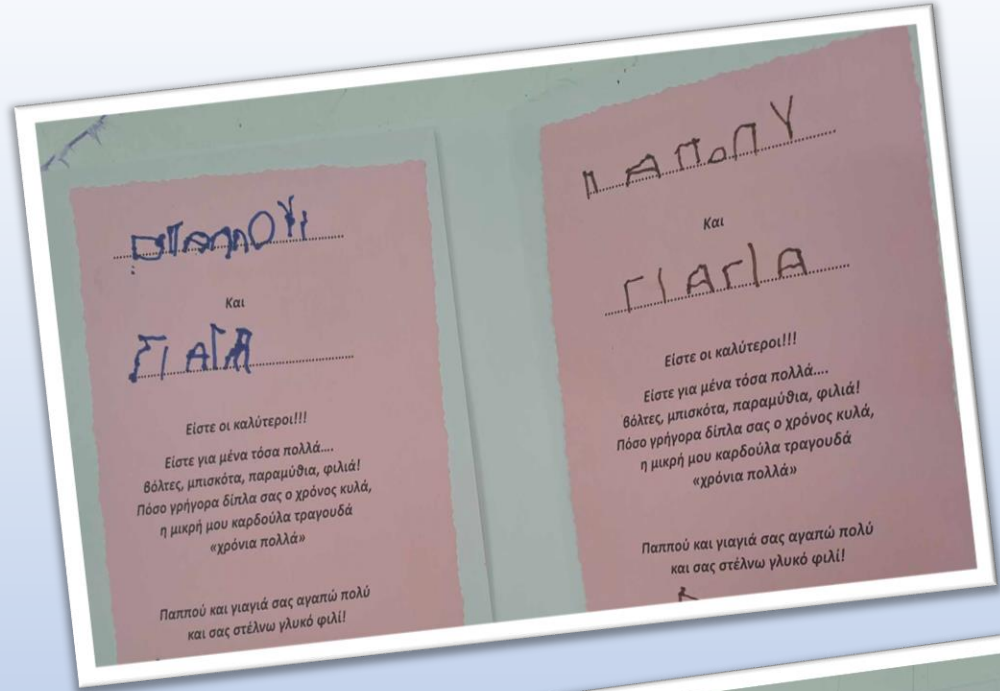 Και
ΓΙΑΓΙΑ
Είστε οι καλύτεροι!!!
Είστε για μένα τόσα πολλά....
βόλτες, μπισκότα, παραμύθια, φιλιά!
Πόσο γρήγορα δίπλα σας ο χρόνος κυλά,
η μικρή μου καρδούλα τραγουδά
«χρόνια πολλά»
Παππού και γιαγιά σας αγαπώ πολύ
και σας στέλνω γλυκό φιλί!
ΠΑΠΟΠΥ
Και
ΓΙΑΓΙΑ
Είστε οι καλύτεροι!!!
Είστε για μένα τόσα πολλά....
βόλτες, μπισκότα, παραμύθια, φιλιά!
Πόσο γρήγορα δίπλα σας ο χρόνος κυλά,
η μικρή μου καρδούλα τραγουδά
«χρόνια πολλά»
Παππού και γιαγιά σας αγαπώ πολύ
και σας στέλνω γλυκό φιλί!